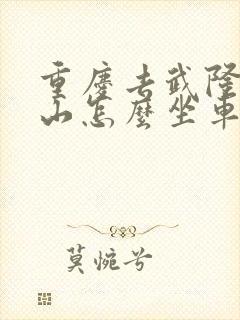 重慶去武隆
山怎麼坐車
莫惋兮